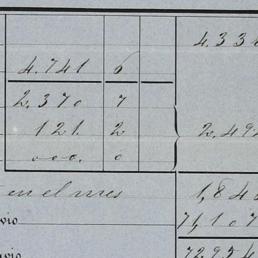 4.33
4.741 6
2,370 7
121 2 2,49
000. 0
en el mes 1,84
vio 71,107
vio 72,95